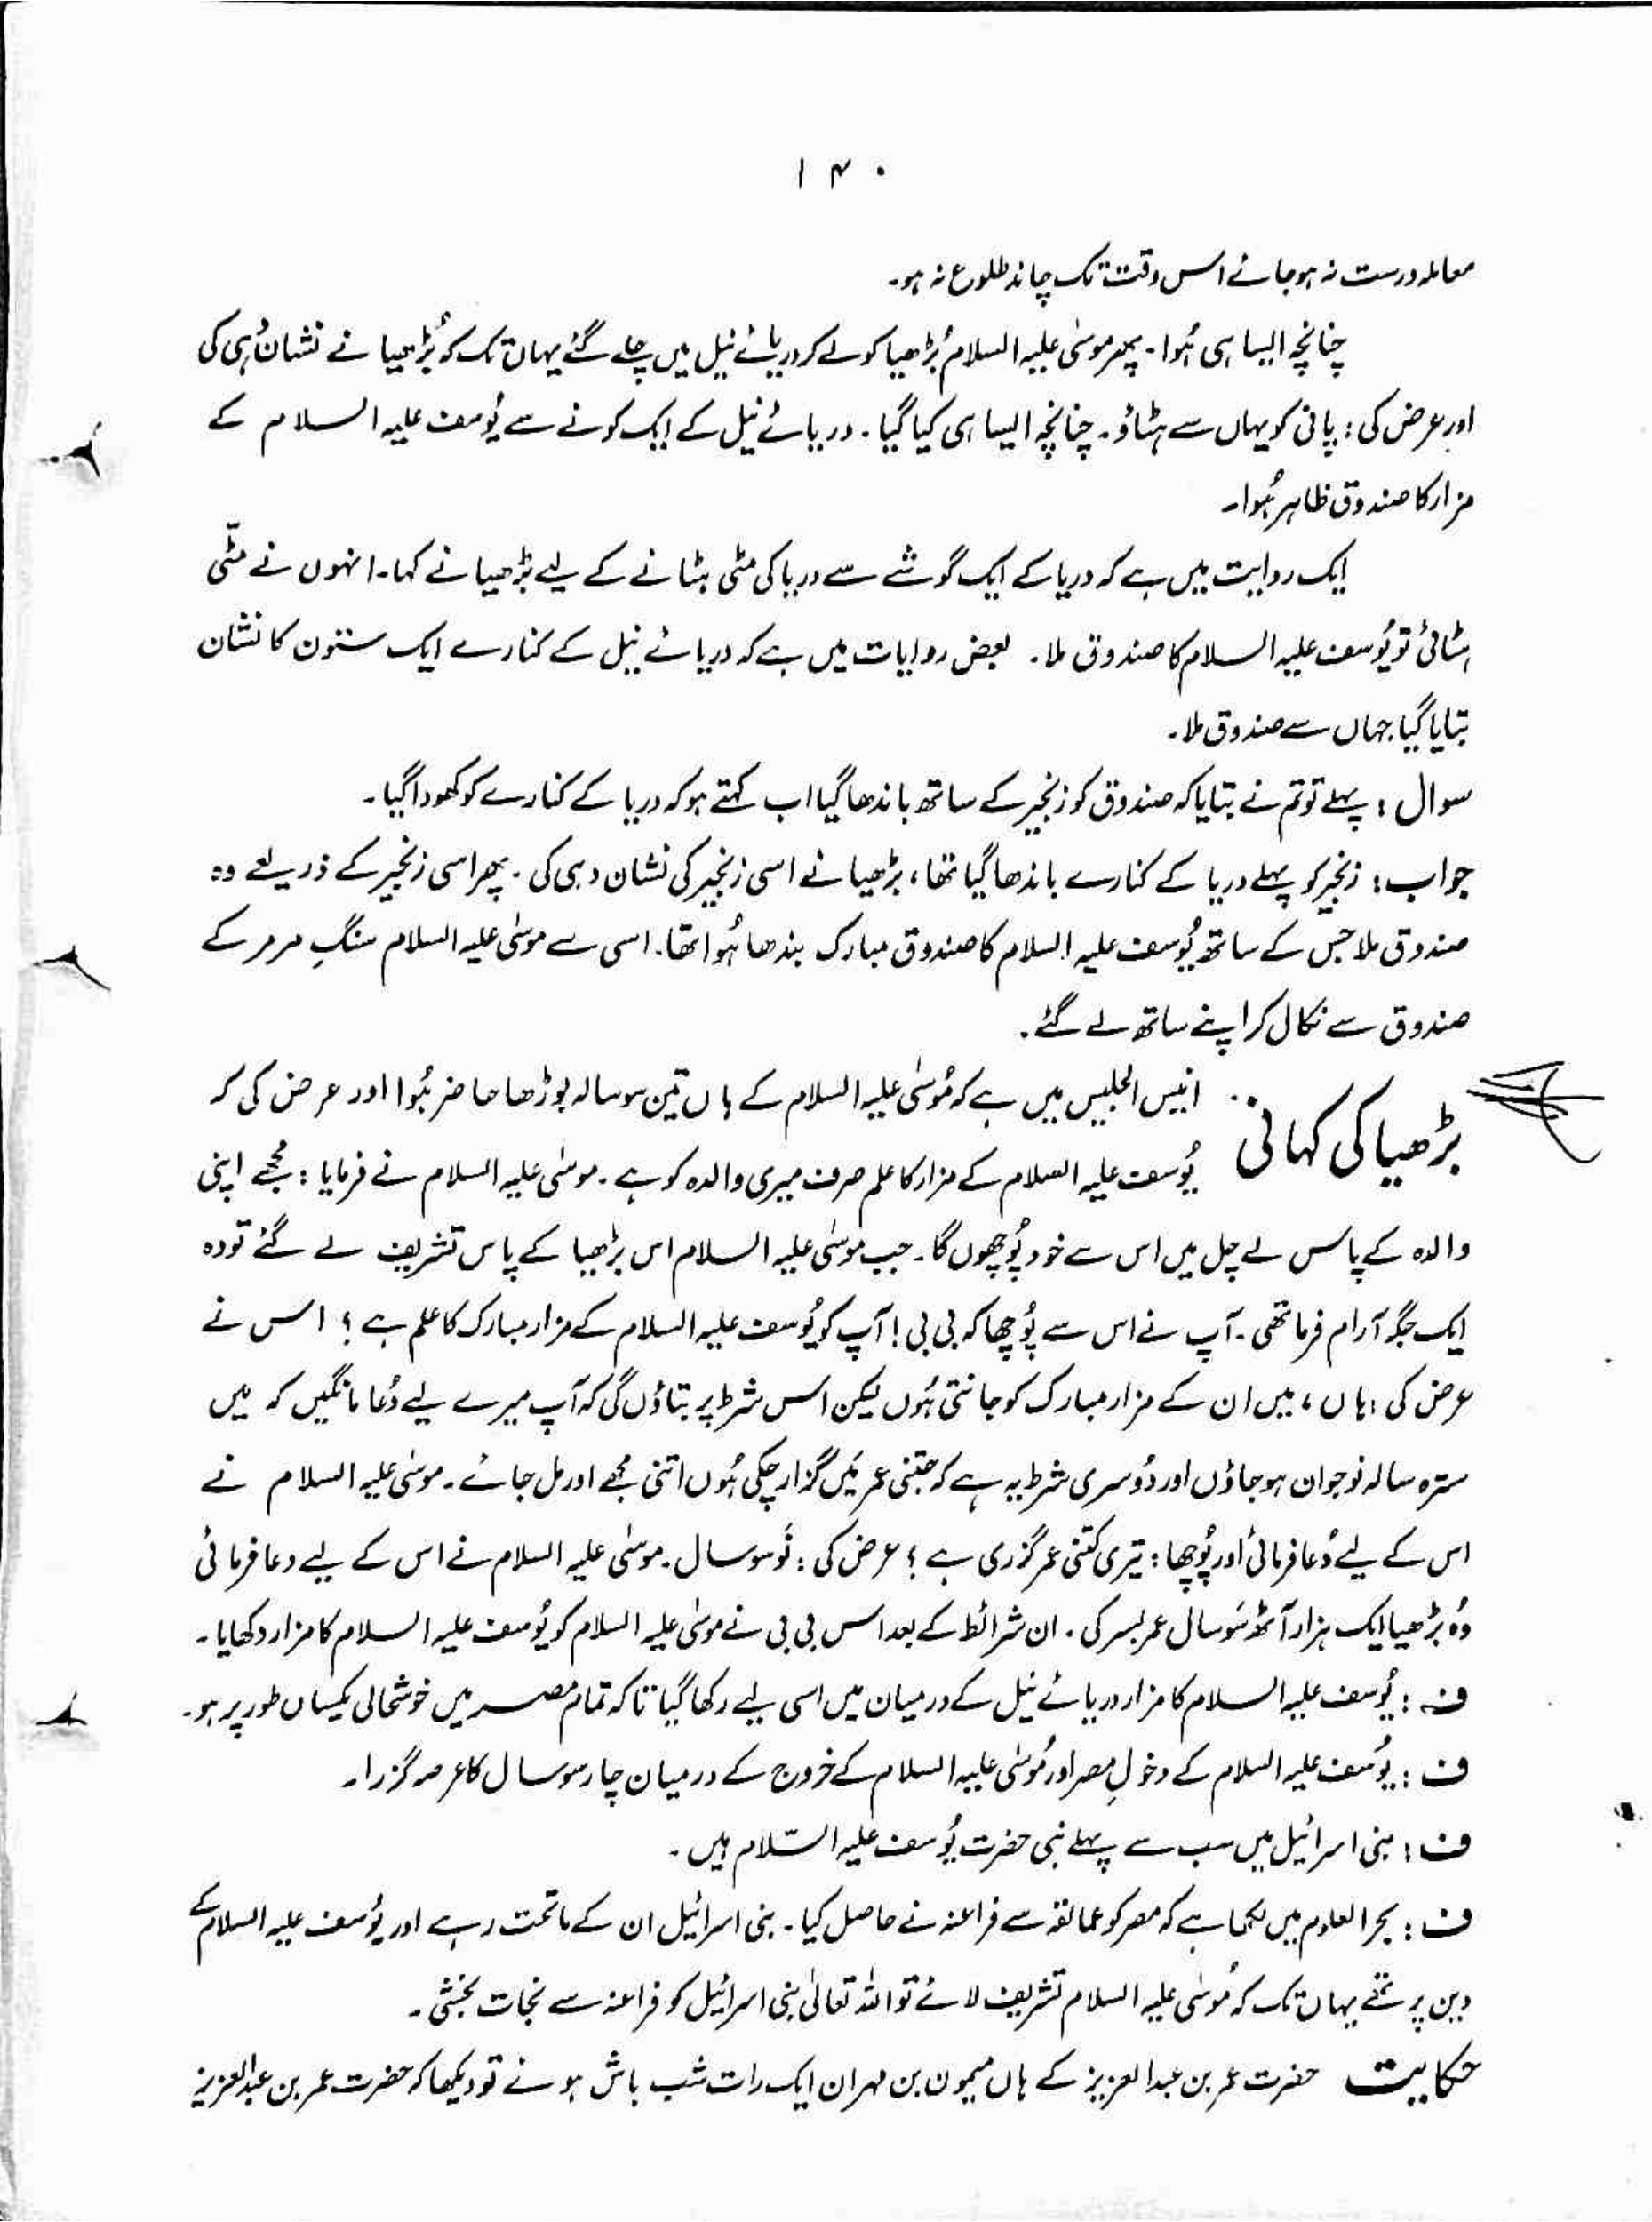 ۱۴۰
معاملہ درست نہ ہو جائے اس وقت تک چاند طلوع نہ ہو۔
چنانچہ ایسا ہی ہُوا۔ پھر موسٰی علیہ السلام بُڑھیا کو لے کر دریائے نیل میں چلے گئے یہاں تک کہ بُڑھیا نے نشان دہی کی
اور عرض کی: پانی کو یہاں سے ہٹاؤ۔ چنانچہ ایسا ہی کیا گیا۔ دریائے نیل کے ایک کونے سے یُوسف علیہ السلام کے
مزار کا صندوق ظاہر ہُوا۔
ایک روایت میں ہے کہ دریا کے ایک گوشے سے دریا کی مٹی ہٹانے کے لیے بڑھیا نے کہا۔ انہوں نے مٹّی
ہٹائی تو یُوسف علیہ السلام کا صندوق ملا۔ بعض روایات میں ہے کہ دریائے نیل کے کنارے ایک ستون کا نشان
بتایا گیا جہاں سے صندوق ملا۔
سوال: پہلے تو تم نے بتایا کہ صندوق کو زنجیر کے ساتھ باندھا گیا اب کہتے ہو کہ دریا کے کنارے کو کھودا گیا۔
جواب: زنجیر کو پہلے دریا کے کنارے باندھا گیا تھا، بڑھیا نے اسی زنجیر کی نشان دہی کی۔ پھر اسی زنجیر کے ذریعے وہ
صندوق ملا جس کے ساتھ یُوسف علیہ السلام کا صندوق مبارک بندھا ہُوا تھا۔ اسی سے موسٰی علیہ السلام سنگِ مرمر کے
صندوق سے نکال کر اپنے ساتھ لے گئے۔
بڑھیا کی کہانی انیس الجلیس میں ہے کہ مُوسٰی علیہ السلام کے ہاں تین سو سالہ بوڑھا حاضر ہُوا اور عرض کی کہ
یُوسف علیہ السلام کے مزار کا علم صرف میری والدہ کو ہے۔ موسٰی علیہ السلام نے فرمایا: مجھے اپنی
والدہ کے پاس لے چل میں اس سے خود پُوچھوں گا۔ جب موسٰی علیہ السلام اس بڑھیا کے پاس تشریف لے گئے تو وہ
ایک جگہ آرام فرما تھی۔ آپ نے اس سے پُوچھا کہ بی بی! آپ کو یُوسف علیہ السلام کے مزار مبارک کا علم ہے؟ اس نے
عرض کی: ہاں، میں ان کے مزار مبارک کو جانتی ہُوں لیکن اس شرط پر بتاؤں گی کہ آپ میرے لیے دُعا مانگیں کہ میں
سترہ سالہ نوجوان ہو جاؤں اور دُوسری شرط یہ ہے کہ جتنی عمر میَں گزار چکی ہُوں اتنی مجھے اور مل جائے۔ موسٰی علیہ السلام نے
اس کے لیے دُعا فرمائی اور پُوچھا: تیری کتنی عمر گزری ہے؟ عرض کی: نَو سو سال۔ موسٰی علیہ السلام نے اس کے لیے دعا فرمائی
وُہ بڑھیا ایک ہزار آٹھ سَو سال عمر بسر کی۔ ان شرائط کے بعد اس بی بی نے موسٰی علیہ السلام کو یُوسف علیہ السلام کا مزار دکھایا۔
ف: یُوسف علیہ السلام کا مزار دریائے نیل کے درمیان میں اسی لیے رکھا گیا تاکہ تمام مصر میں خوشحالی یکساں طور پر ہو۔
ف: یُوسف علیہ السلام کے دخولِ مصر اور مُوسٰی علیہ السلام کے خروج کے درمیان چار سو سال کا عرصہ گزرا۔
ف: بنی اسرائیل میں سب سے پہلے نبی حضرت یُوسف علیہ السّلام ہیں۔
ف: بحر العلوم میں لکھا ہے کہ مصر کو عمالقہ سے فراعنہ نے حاصل کیا۔ بنی اسرائیل ان کے ماتحت رہے اور یُوسف علیہ السلام کے
دین پر تھے یہاں تک کہ مُوسٰی علیہ السلام تشریف لائے تو اللہ تعالٰی بنی اسرائیل کو فراعنہ سے نجات بخشی۔
حکایت حضرت عمر بن عبدالعزیز کے ہاں میمون بن مہران ایک رات شب باش ہوئے تو دیکھا کہ حضرت عمر بن عبدالعزیز